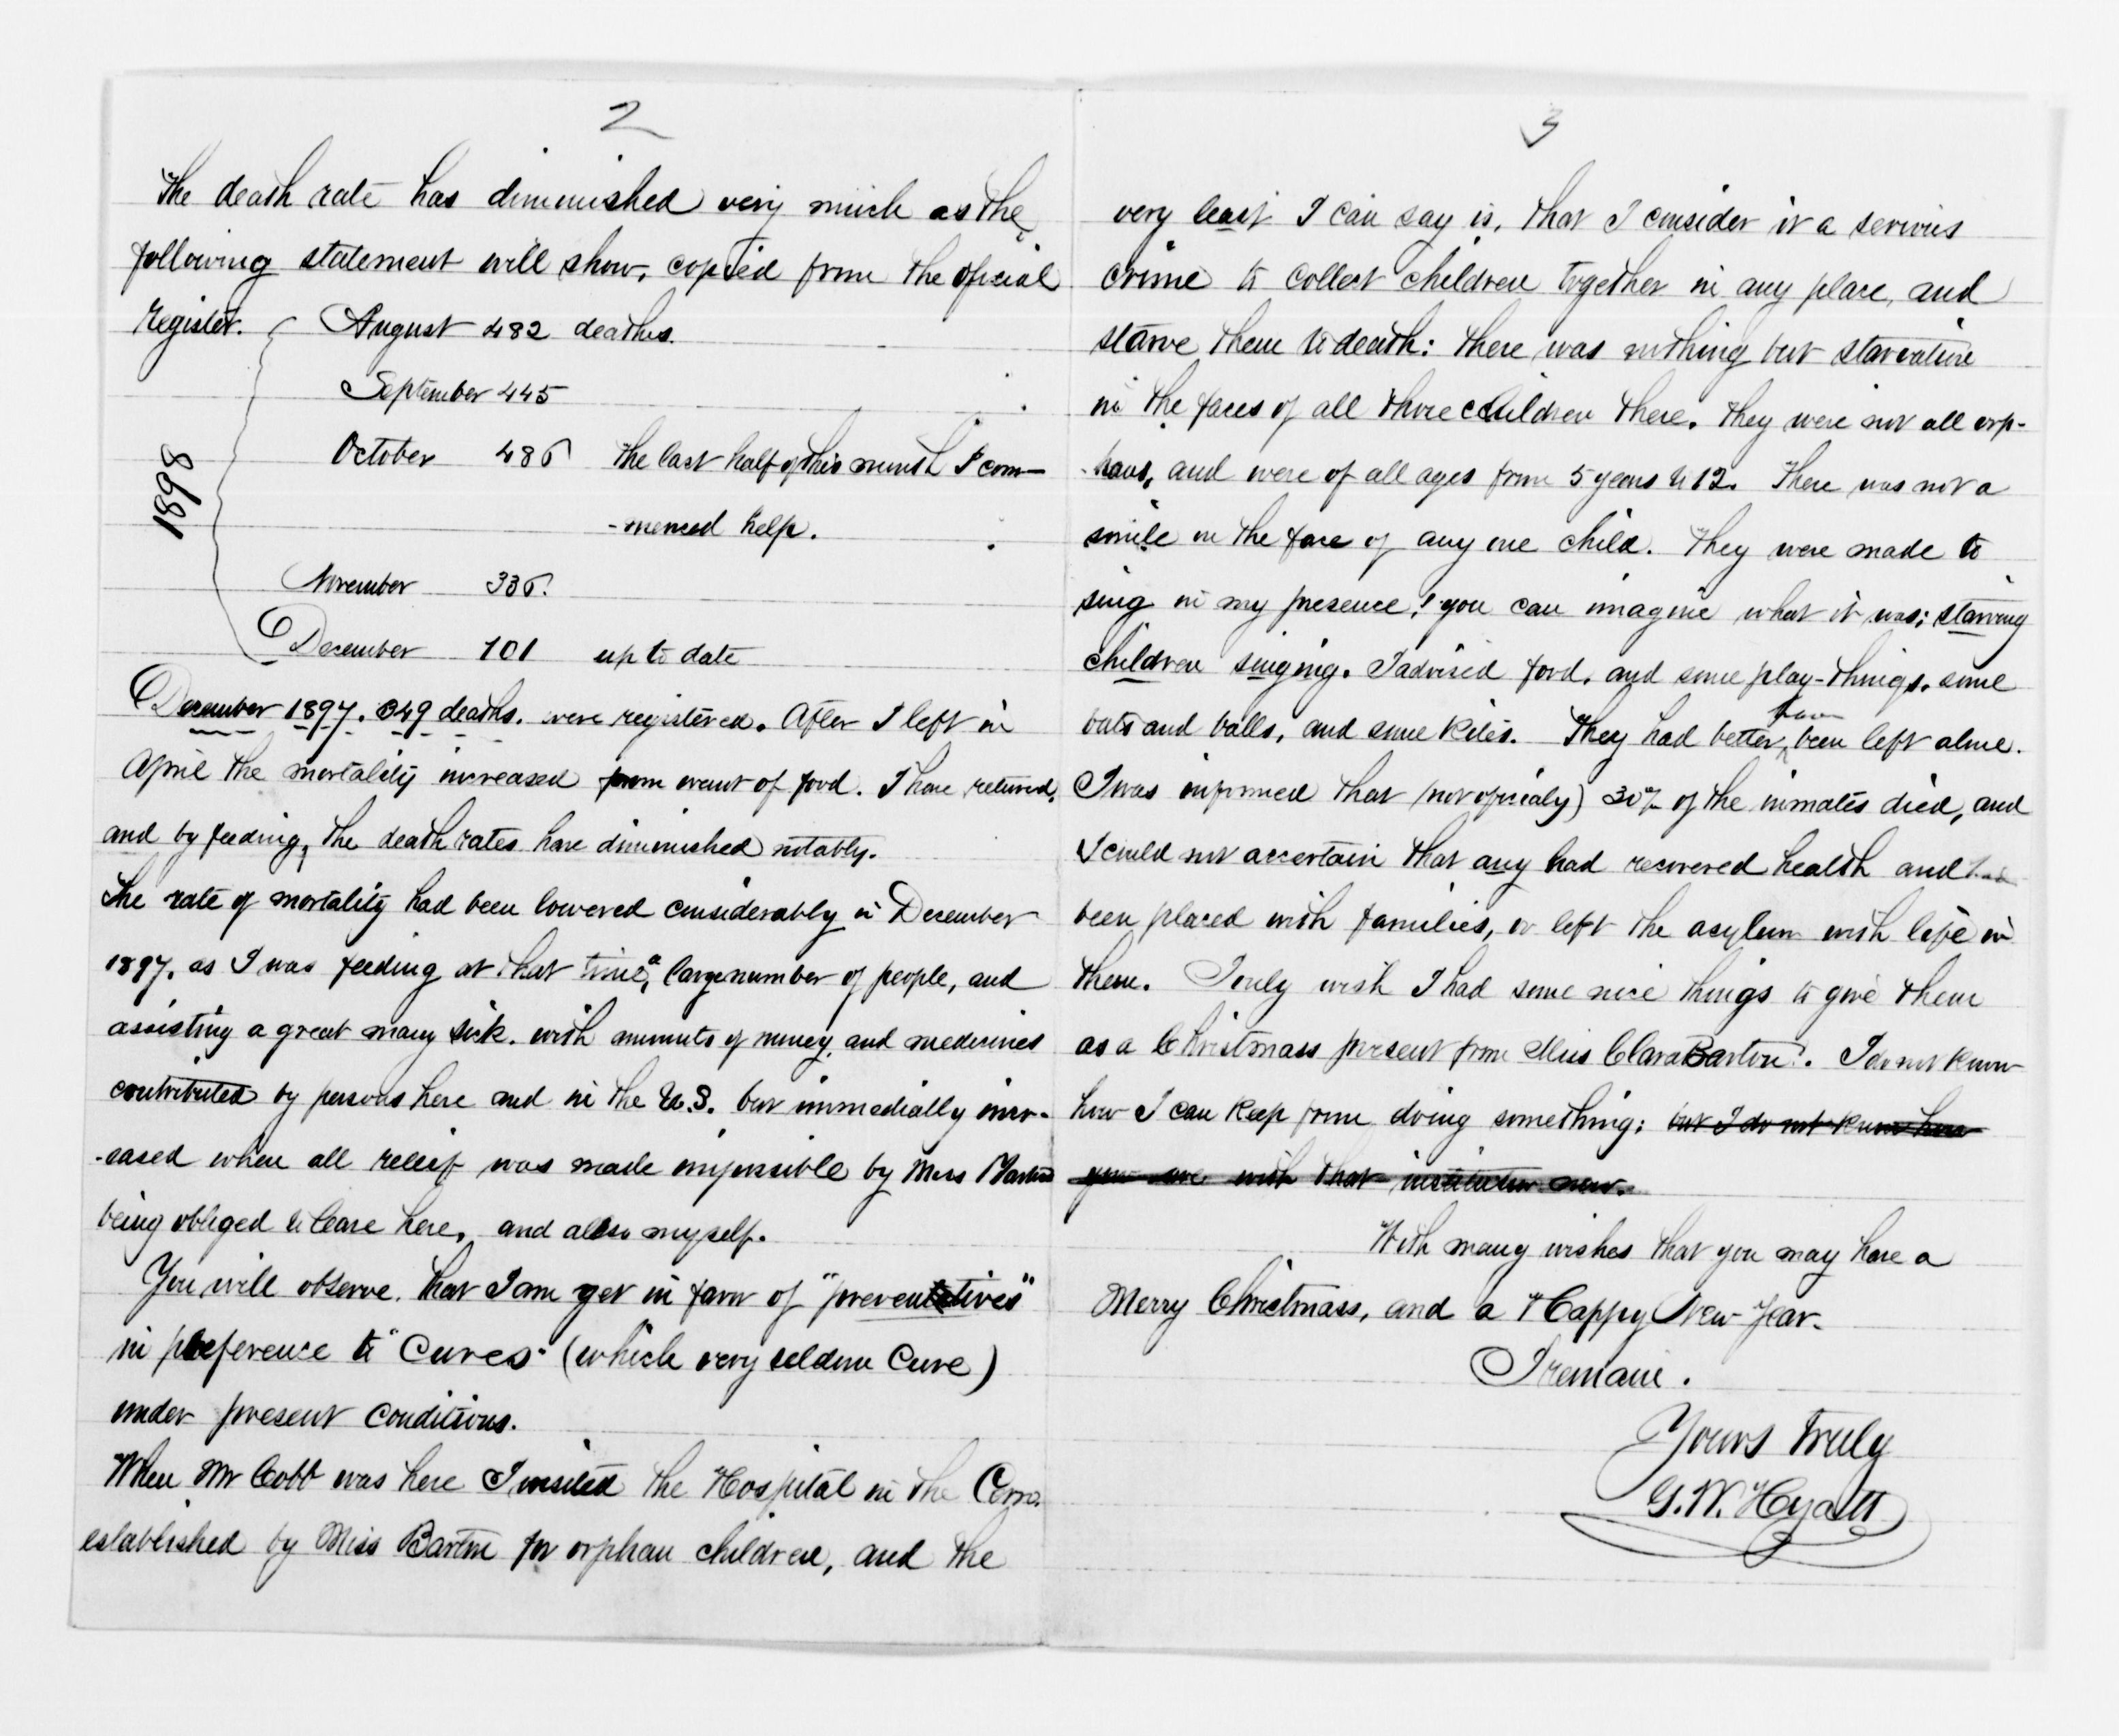 2
The death rate has diminished very much as the
following statement will show, copied from the oficial
register. August 482 deaths.
September 445
October 486 The last half of this month I com-
-menced help.
1898
November 336.
December 101 up to date
December 1897. 349 deaths. were registered. After I left in
April the mortality increased from want of food. I have returned,
and by feeding, the death rates have diminished notably.
The rate of mortality had been lowered considerably in December
1897. as I was feeding at that time, a large number of people, and
assisting a great many sick. with amounts of money, and medicines
contributed by persons here and in the U.S. but immedially incr-
-eased when all relief was made impossible by Miss
being obliged to leave here, and allso myself.
You will observe. that I am yet in favor of "preventatives"
in preference to "Cures" (which very seldom Cure)
under present conditions.
When Mr Cobb was here I visited the Hospital in the Cerro.
established by Miss Barton for orphan children, and the
3
very least I can say is, that I consider it a serious
crime to collect children together in any place, and
starve them to death: there was nothing but starvation
in the faces of all those children there. They were not all orp-
-hans, and were of all ages from 5 years to 12. There was not a
smile on the face of any one child. They were made to
sing in my presence! you can imagine what it was; starving
children singing. I advised food, and some play-things. some
bats and balls, and some kites. They had better have been left alone.
I was informed that (not oficialy) 30% of the inmates died, and
I could not accertain that any had recovered health and had
been placed with families, or left the asylum with life in
them. I only wish I had some nice things to give them
as a Christmass present from Miss Clara Barton!. I do not know
how I can keep from doing something; but I do not know how
you are with that institution now.
With many wishes that you may have a
Merry Christmass, and a Happy New-Year.
I remain.
Yours Truly
G. W. Hyatt